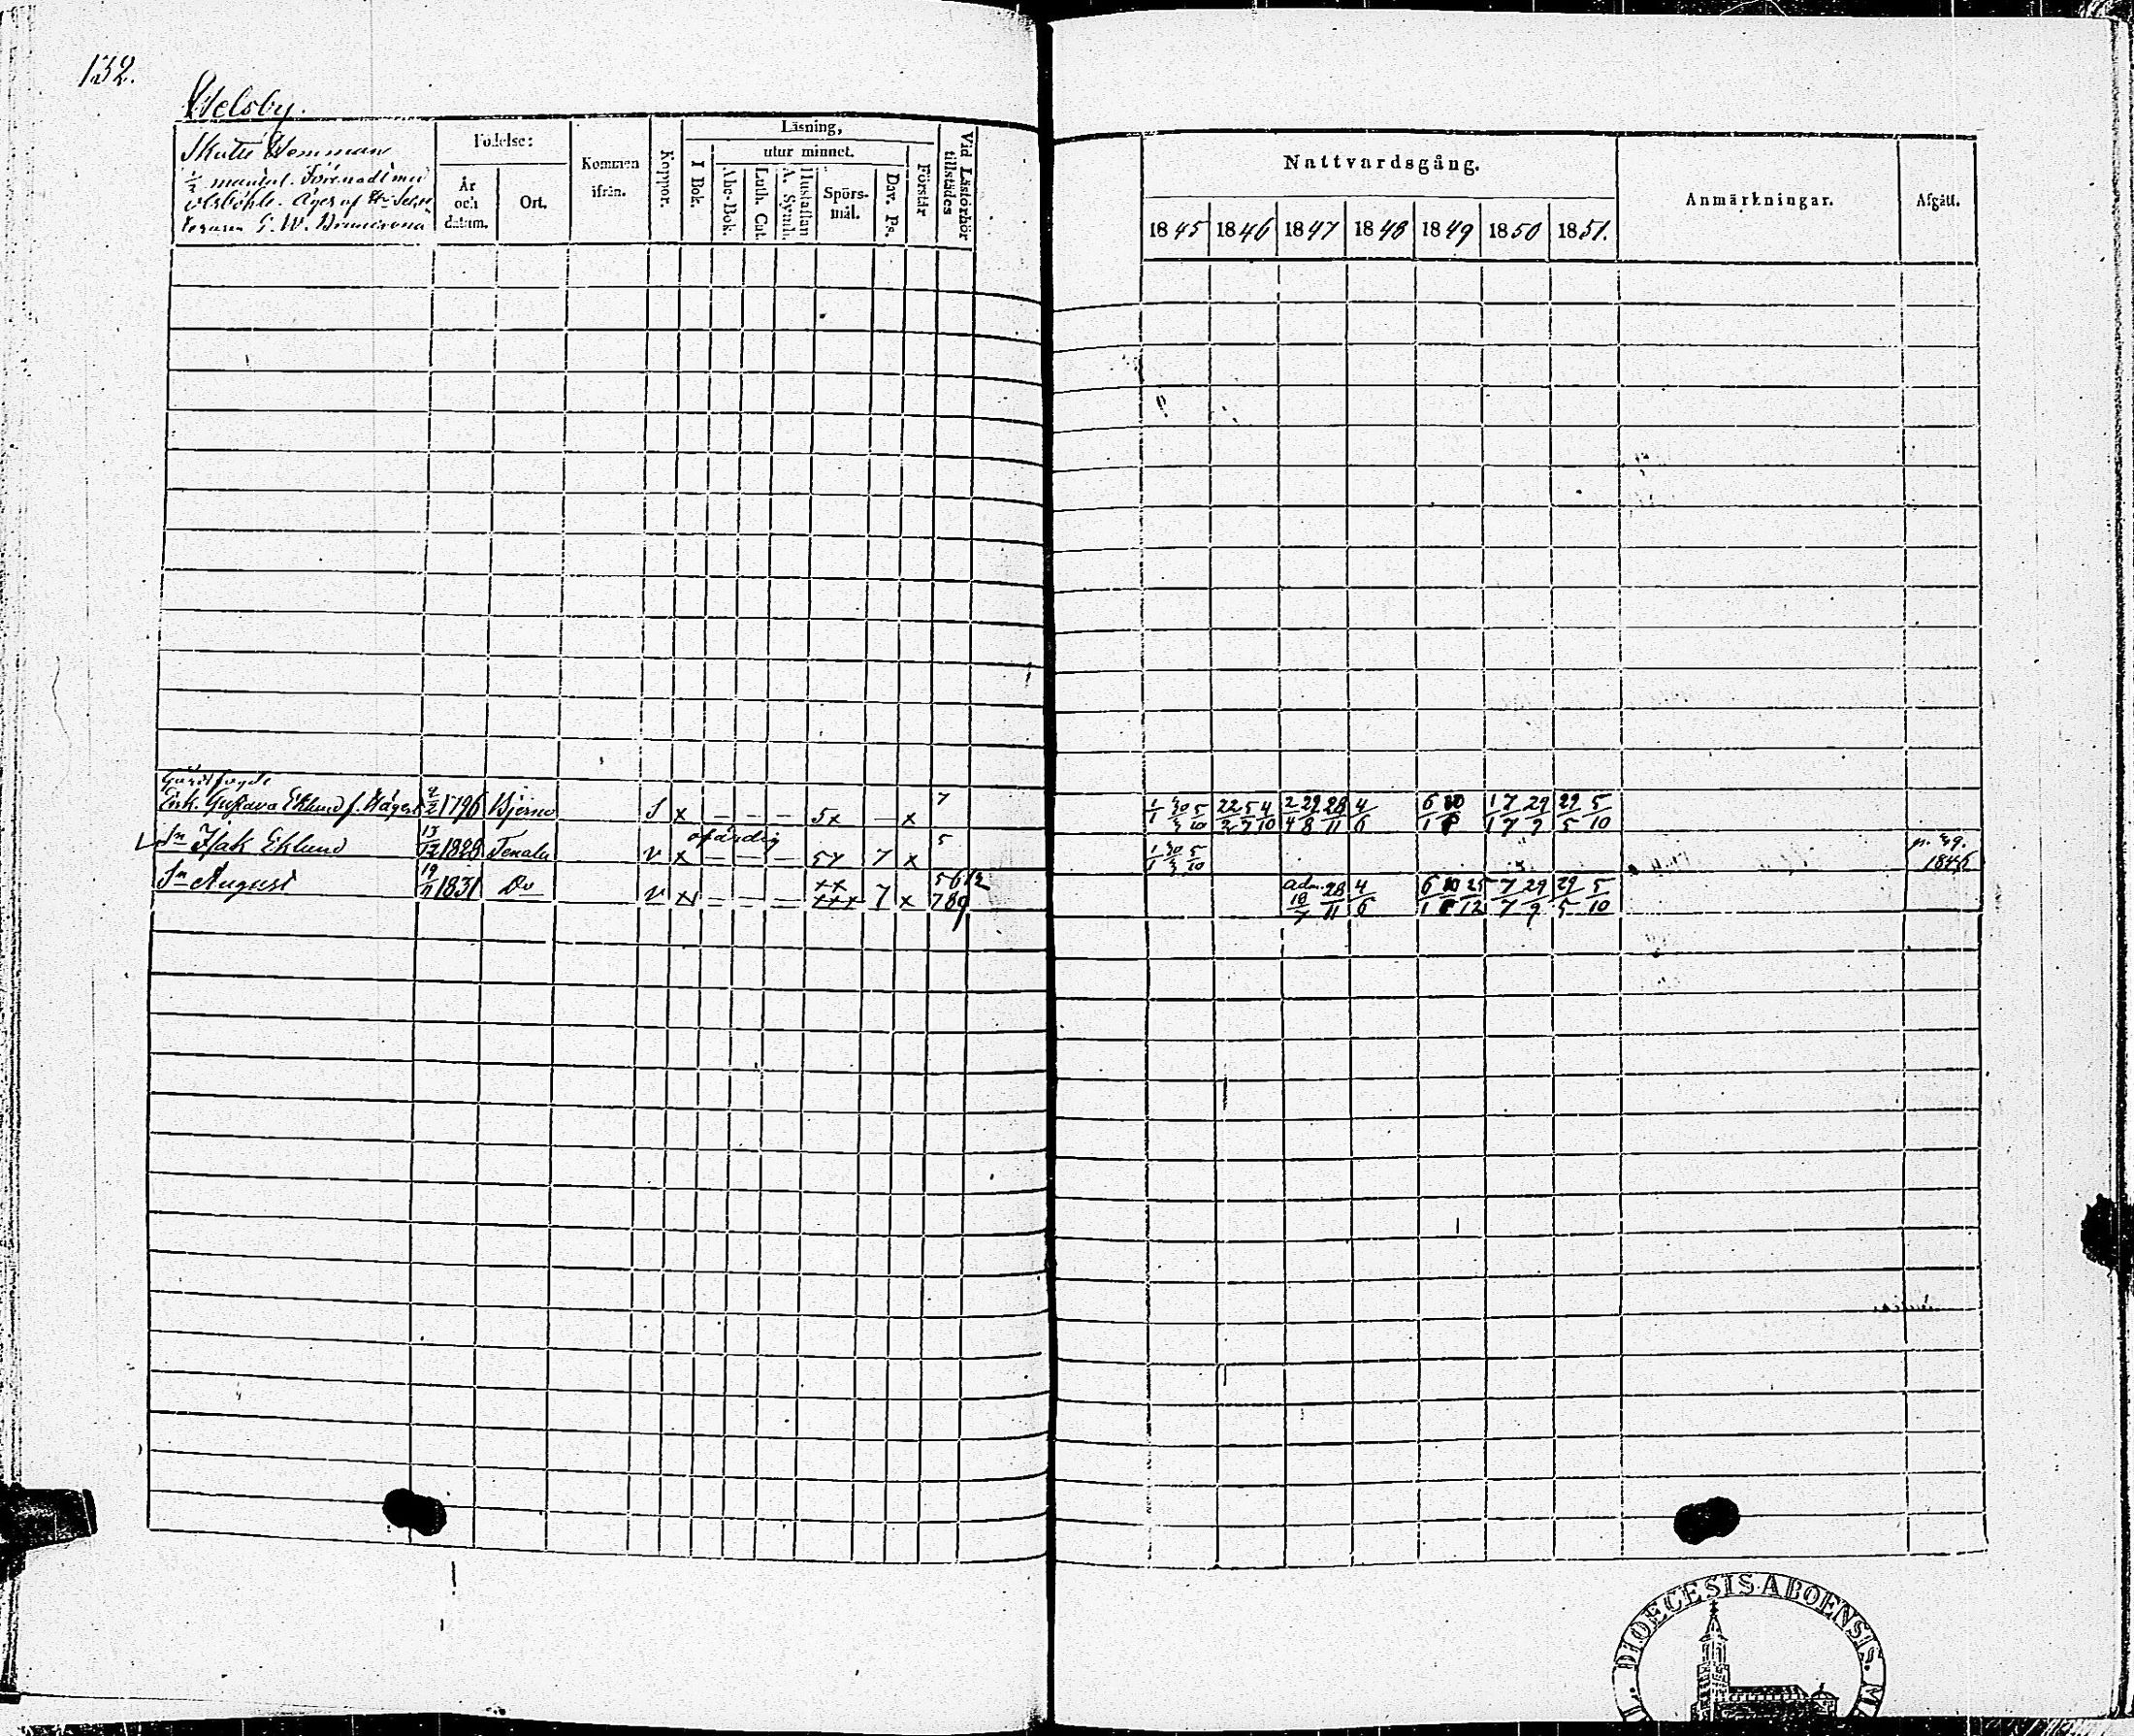 132.
Skatte Hemman
½ mantal. Förenadt med
Olsböhle. Äges af
G. W.
Födelse:
År och datum.
Ort.
Kommen ifrån.
Koppor.
Läsning,
I Bok.
utur minnet.
Abc-Bok.
Luth. Cat.
Hustaflan A. Symb.
Spörsmål.
Dav. Ps.
Förstår
Vid Läsförhör tillstädes
Nattvardsgång.
1845 1846 1847 1848 1849 1850 1851.
Anmärkningar.
Afgått.
Enk. Gustava Eklund f. 1796 Bjerno S x – – – 5x – x 7 1/1 30/3 5/10 22/2 5/7 4/10 2/4 29/8 28/11 4/6 6/1 1/1 7/7 29/9 29/5 5/10
ofärdig
Sn Isak Eklund 1828 Tenala v x – – – 7 x 5 1/1 30/3 5/10 1846
Sn August 19/11 1831 Do v x – – – xx xxx 7 x 56½ 789 adm. 18/7 28/11 4/6 6/1 25/12 7/7 29/9 29/5 5/10
DIOECESIS ABOENSIS.